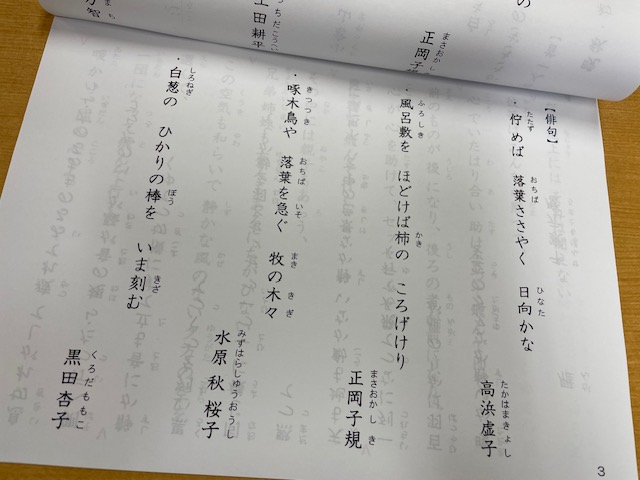 【俳句】
・佇めば　落葉ささやく　日向かな
高浜虚子
・風呂敷を　ほどけば柿の　ころげけり
正岡子規
・啄木鳥や　落葉を急ぐ　牧の木々
水原秋桜子
・白葱の　ひかりの棒を　いま刻む
黒田杏子
3
の
正岡子規
土田耕平